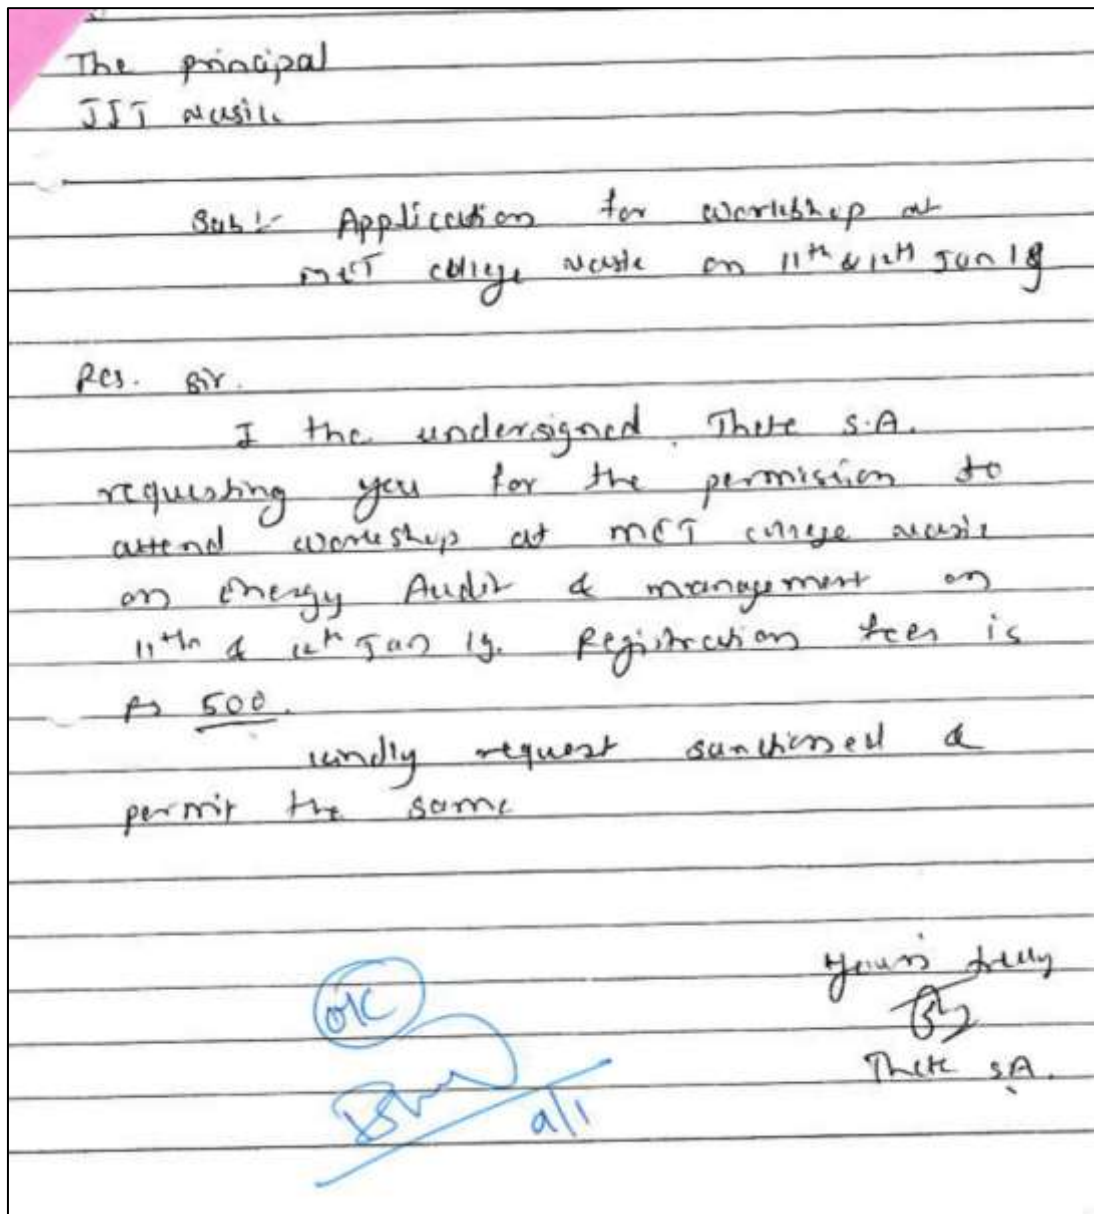 The principal
JIT Nasik
Sub:- Application for workshop at
MET college Nasik on 11th & 12th Jan 18
Res. Sir.
I the undersigned. Thete S.A.
requesting you for the permission to
attend workshop at MET college Nasik
on Energy Audit & management on
11th & 12th Jan 19. Registration fees is
Rs 500.
kindly request sanctioned &
permit the same
Yours truly
Thete S.A.
OK
9/1